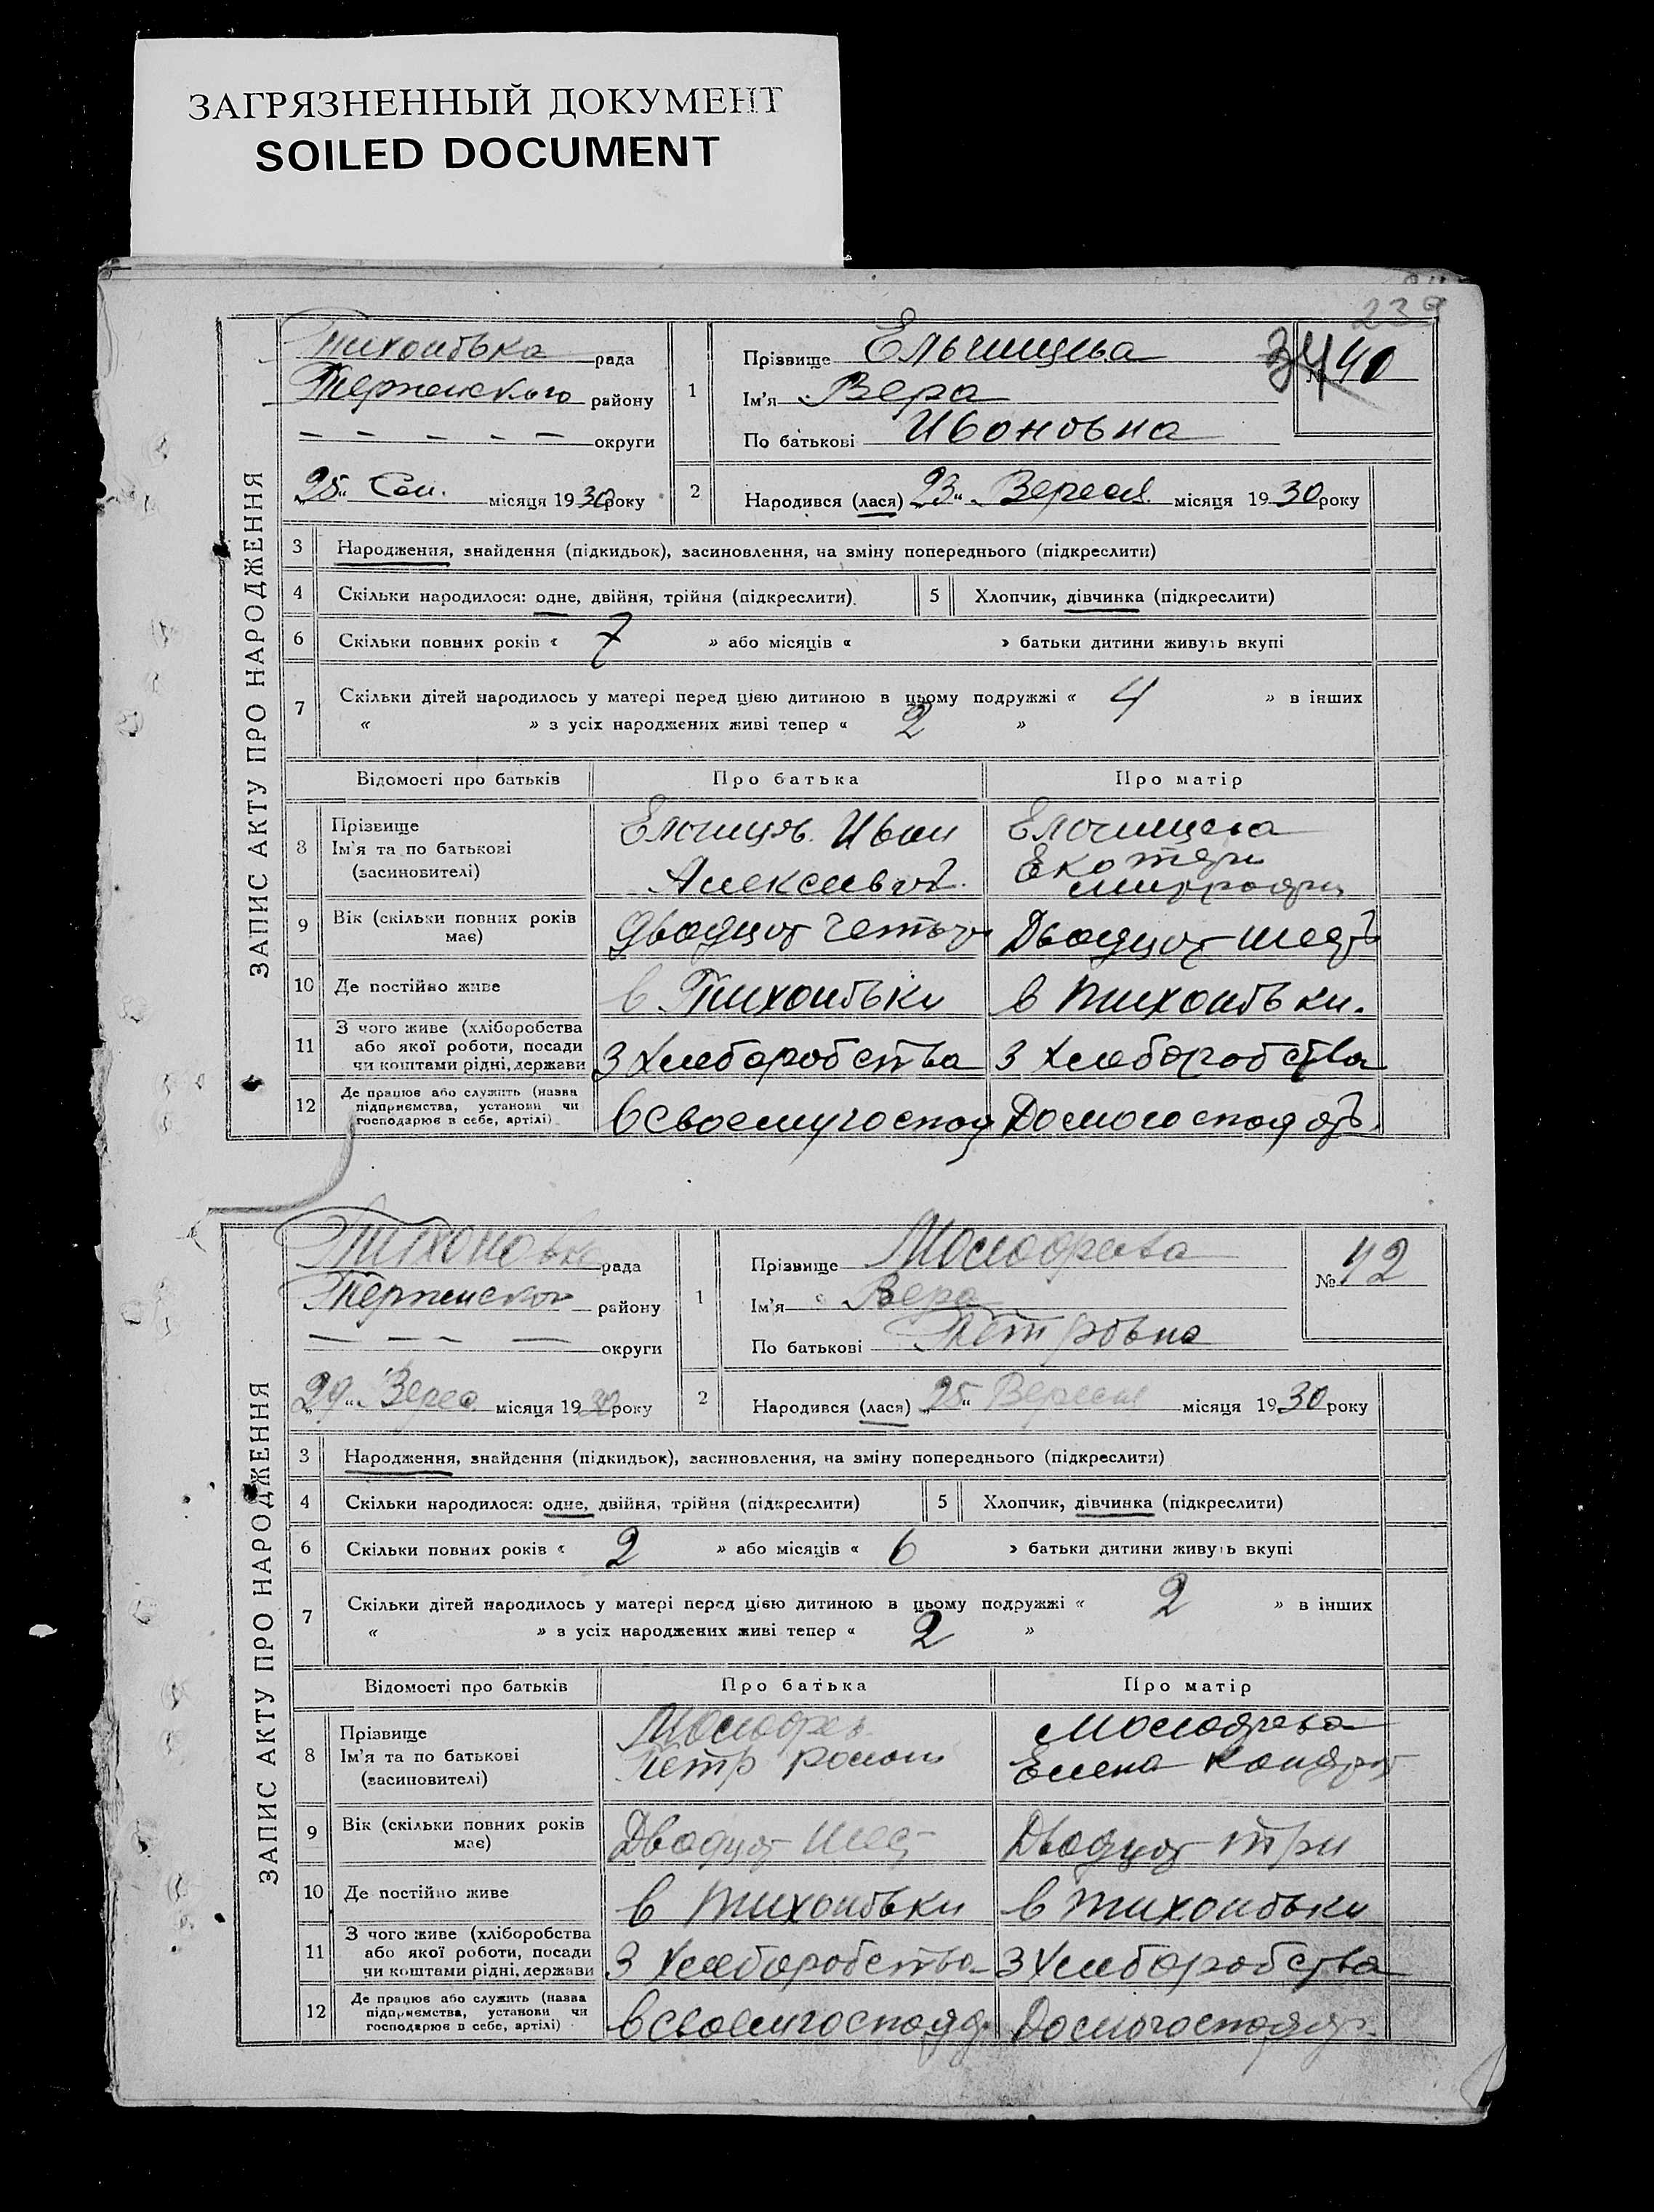 ЗАГРЯЗНЕННЫЙ ДОКУМЕНТ
SOILED DOCUMENT
239
ЗАПИС АКТУ ПРО НАРОДЖЕННЯ
Тихоновка рада
Терпенского району
— — — — — округи
„25“ Сен. місяця 1930 року
1
Прізвище Ельчищева
Ім'я Вера
По батькові Ивоновна
34 № 40
2 Народився (лася) „23“ Вересня місяця 1930 року
3 Народження, знайдення (підкидьок), засиновлення, на зміну попереднього (підкреслити)
4 Скільки народилося: одне, двійня, трійня (підкреслити). 5 Хлопчик, дівчинка (підкреслити)
6 Скільки повних років « 7 » або місяців « » батьки дитини живуть вкупі
7 Скільки дітей народилось у матері перед цією дитиною в цьому подружжі « 4 » в інших
« » з усіх народжених живі тепер « 2 »
Відомості про батьків Про батька Про матір
8 Прізвище
Ім'я та по батькові
(засиновителі)
Иван
9 Вік (скільки повних років має) двадцот Двадцот шест
10 Де постійно живе в Тихоновки в Тихоновки.
11 З чого живе (хліборобства
або якої роботи, посади
чи коштами рідні, держави
З Хлеборобства З Хлеборобства
12 Де працює або служить (назва
підприємства, установи чи
господарює в себе, артілі)
в своему господ Домогосподар.
ЗАПИС АКТУ ПРО НАРОДЖЕННЯ
Тихоновка рада
Терпенског району
— — — — округи
„29“ Верес. місяця 1930 року
1
Прізвище
Ім'я Вера
По батькові Петровна
№ 42
2 Народився (лася) „25“ Вересня місяця 1930 року
3 Народження, знайдення (підкидьок), засиновлення, на зміну попереднього (підкреслити)
4 Скільки народилося: одне, двійня, трійня (підкреслити) 5 Хлопчик, дівчинка (підкреслити)
6 Скільки повних років « 2 » або місяців « 6 » батьки дитини живуть вкупі
7 Скільки дітей народилось у матері перед цією дитиною в цьому подружжі « 2 » в інших
« » з усіх народжених живі тепер « 2 »
Відомості про батьків Про батька Про матір
8 Прізвище
Ім'я та по батькові
(засиновителі)
Петр Роман Елена Кондрат
9 Вік (скільки повних років має) Двадцот шест Двадцот три
10 Де постійно живе в Тихоновки в Тихоновки
11 З чого живе (хліборобства
або якої роботи, посади
чи коштами рідні, держави
З Хлеборобства З Хлеборобства
12 Де працює або служить (назва
підприємства, установи чи
господарює в себе, артілі)
в своем господар. Домогосподар.